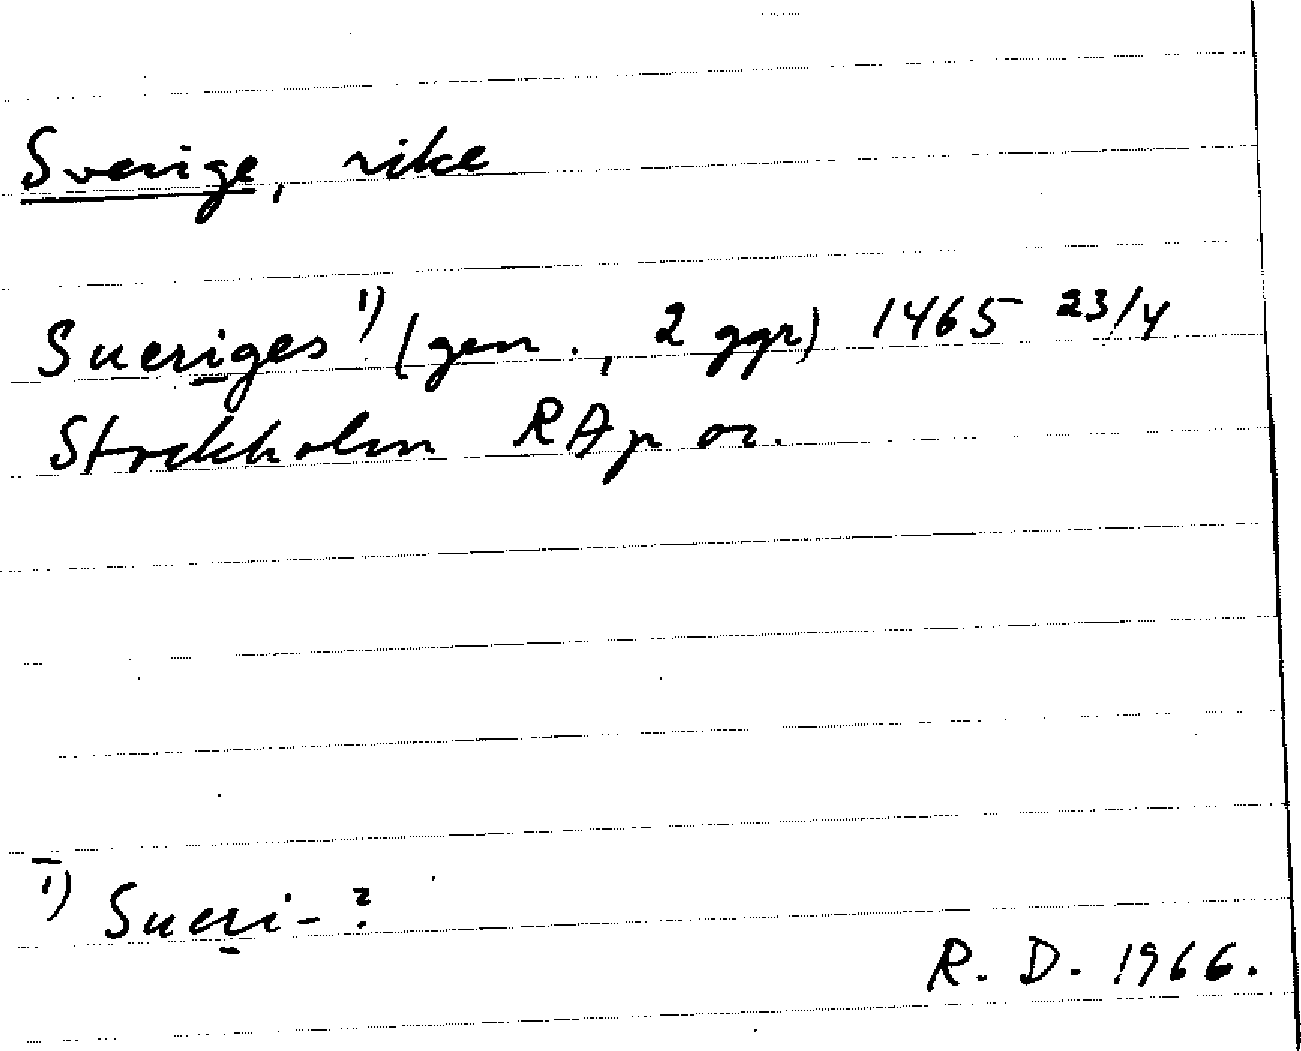 Sverige, rike
Sueriges 1) (gen., 2 ggr) 1465 23/4
Stockholm RAp or.
1) Sueri-?
R. D. 1966.